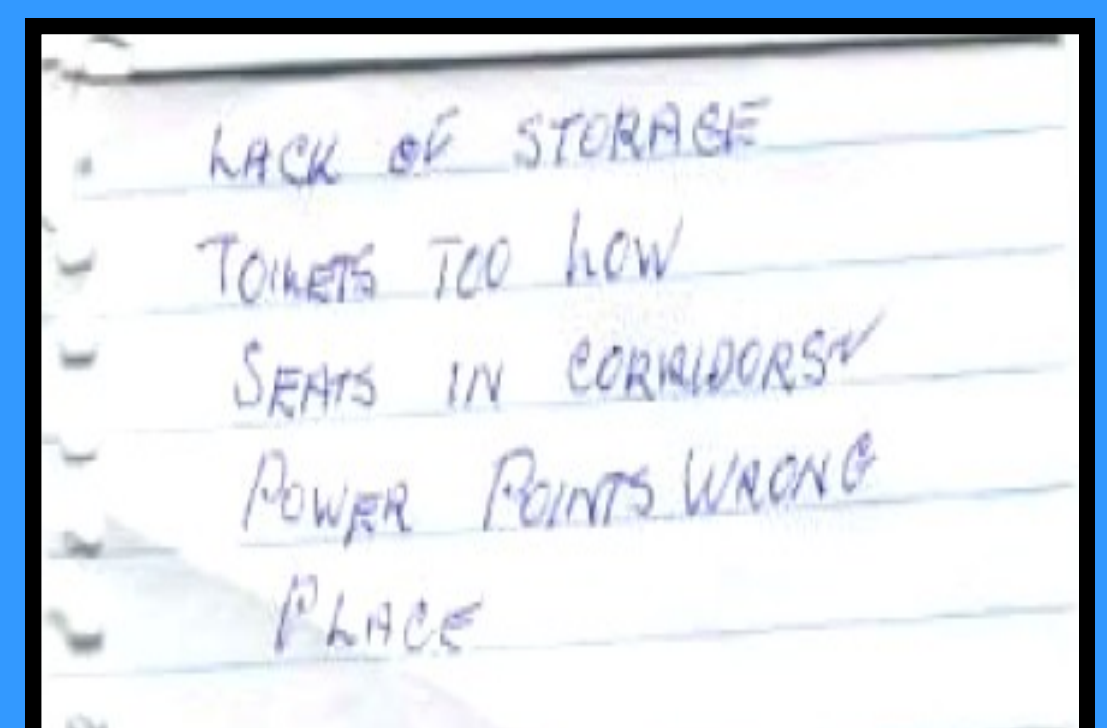 LACK OF STORAGE
TOILETS TOO LOW
SEATS IN CORRIDORS✓
POWER POINTS WRONG
PLACE